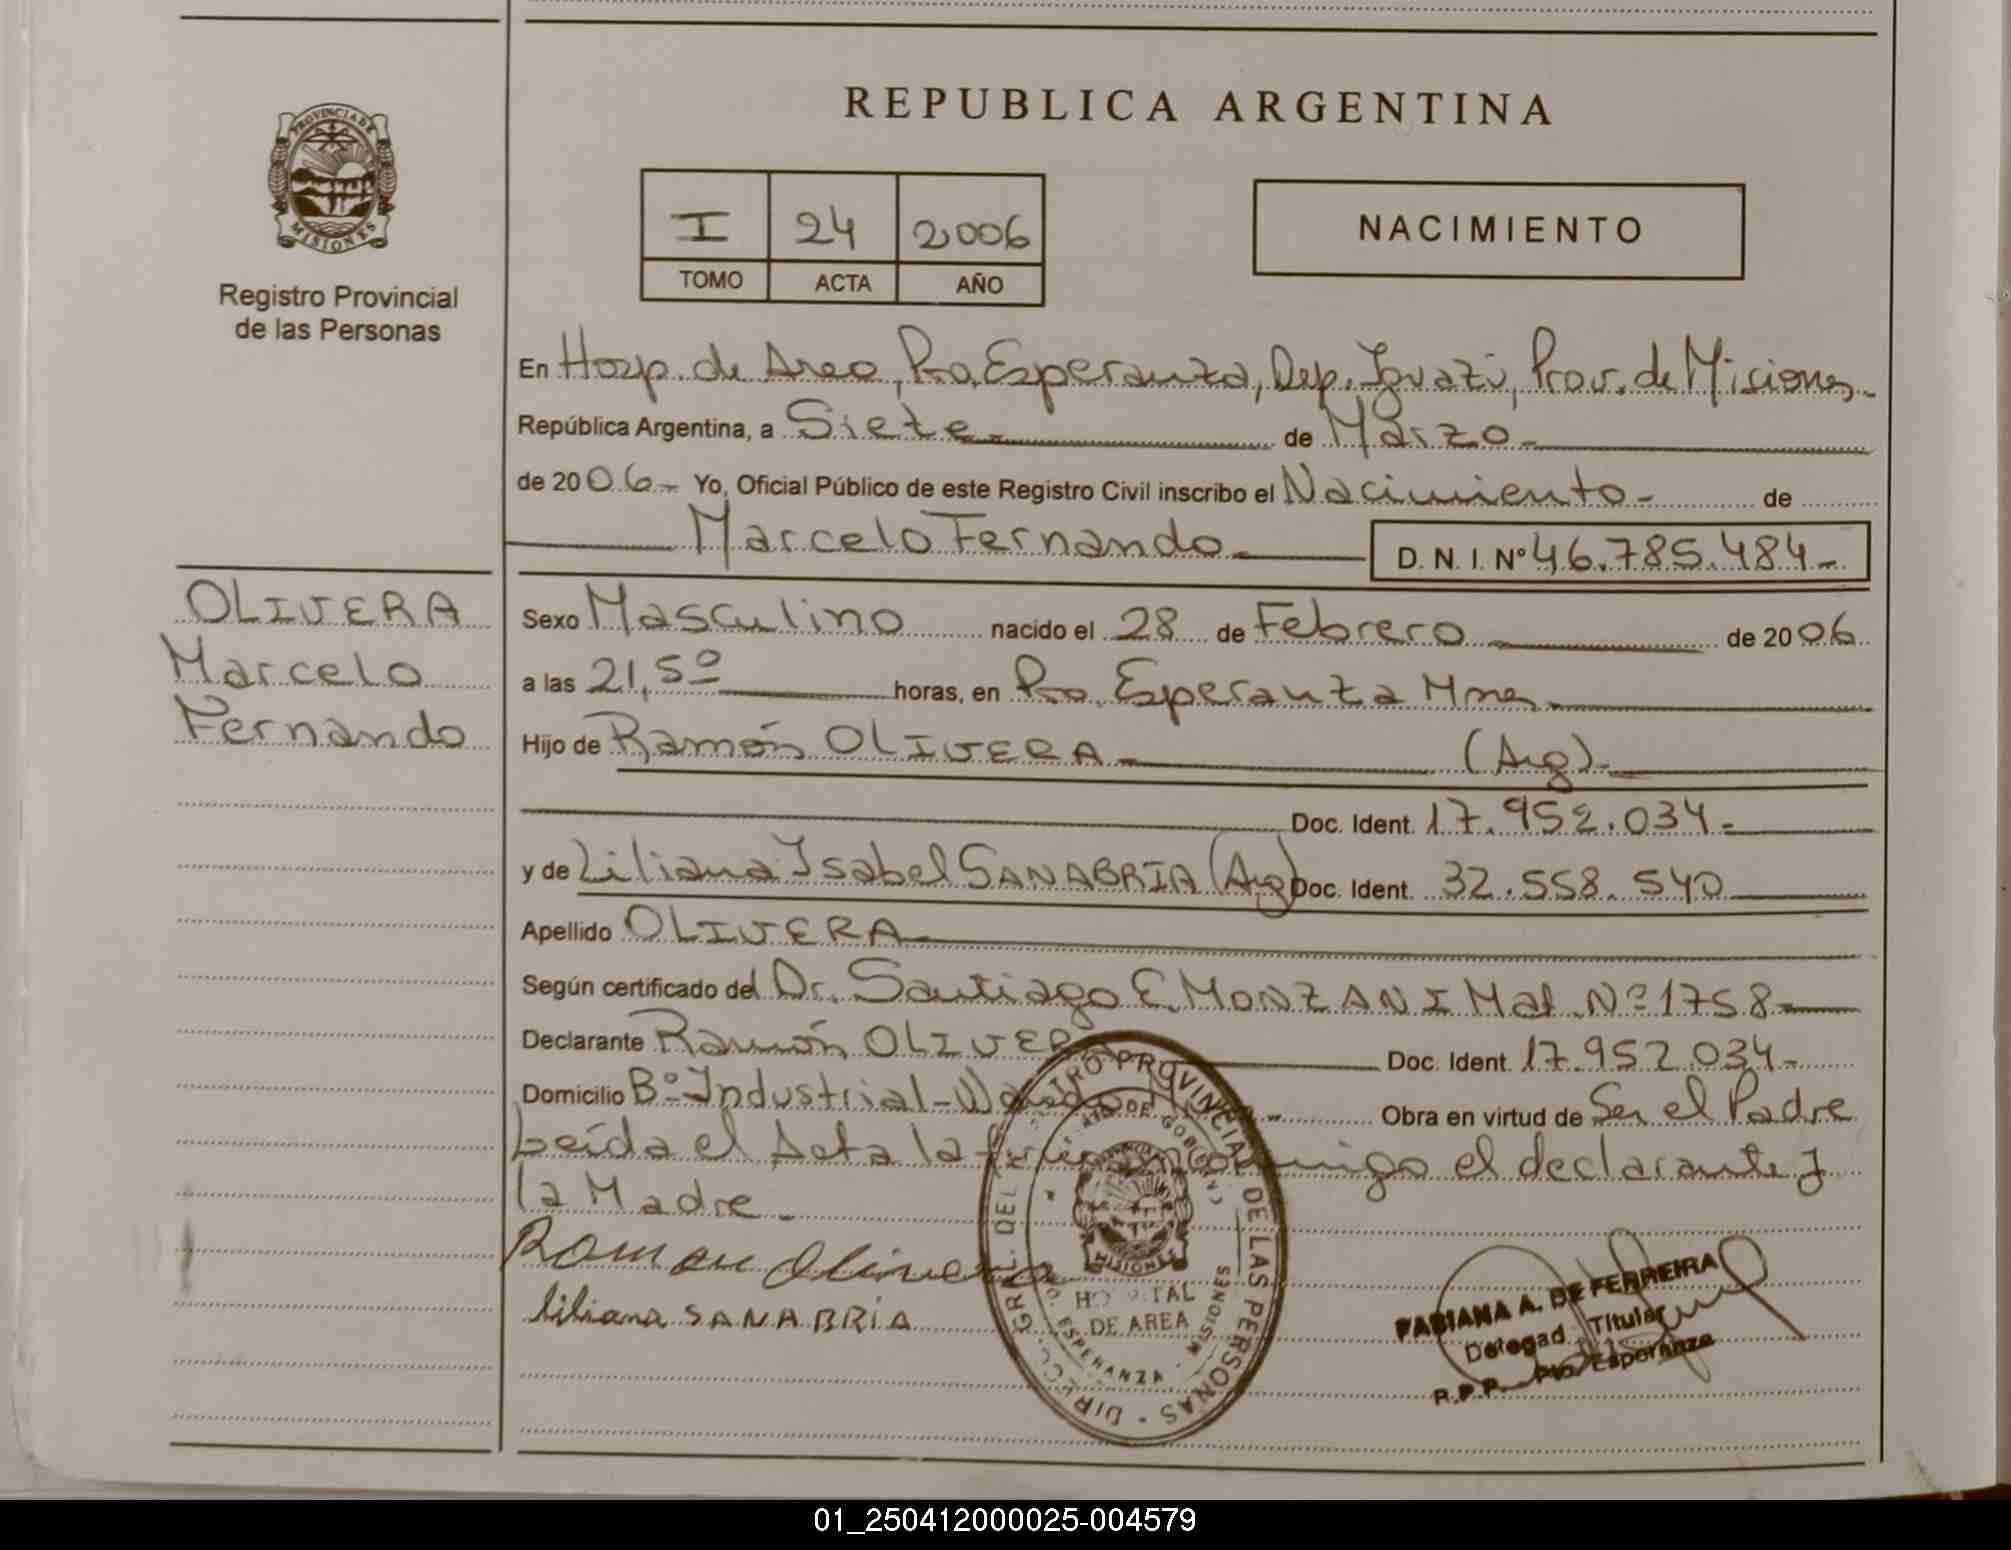 REPUBLICA ARGENTINA
PROVINCIA DE
MISIONES
Registro Provincial
de las Personas
I 24 2006
TOMO ACTA AÑO
NACIMIENTO
En Hosp. de Area, Pto. Esperanza, Dep. Iguazú, Prov. de Misiones.-
República Argentina, a Siete.- de Marzo.-
de 2006.- Yo, Oficial Público de este Registro Civil inscribo el Nacimiento.- de
Marcelo Fernando.- D. N. I. Nº 46.785.484.-
OLIVERA
Marcelo
Fernando
Sexo Masculino nacido el 28 de Febrero de 2006
a las 21,50 horas, en Pto. Esperanza Mnes.
Hijo de Ramón OLIVERA.- (Arg).-
Doc. Ident. 17.952.034.-
y de Liliana Isabel SANABRIA (Arg) Doc. Ident. 32.558.540
Apellido OLIVERA.-
Según certificado del Dr. Santiago E. MONZANI Mat. Nº 1758
Declarante Ramón OLIVERA Doc. Ident. 17.952.034.-
Domicilio Bº Industrial - Obra en virtud de Ser el Padre
Leída el Acta la el declarante y
la Madre.-
Ramon Olivera
liliana SANABRIA
DIRECC. GRAL. DEL REGISTRO PROVINCIAL DE LAS PERSONAS
MINISTERIO DE GOBIERNO
MISIONES
HOSPITAL
DE AREA
PTO. ESPERANZA - MISIONES
FABIANA A. DE FERREIRA
Delegada Titular
R.P.P. Pto. Esperanza
01_250412000025-004579